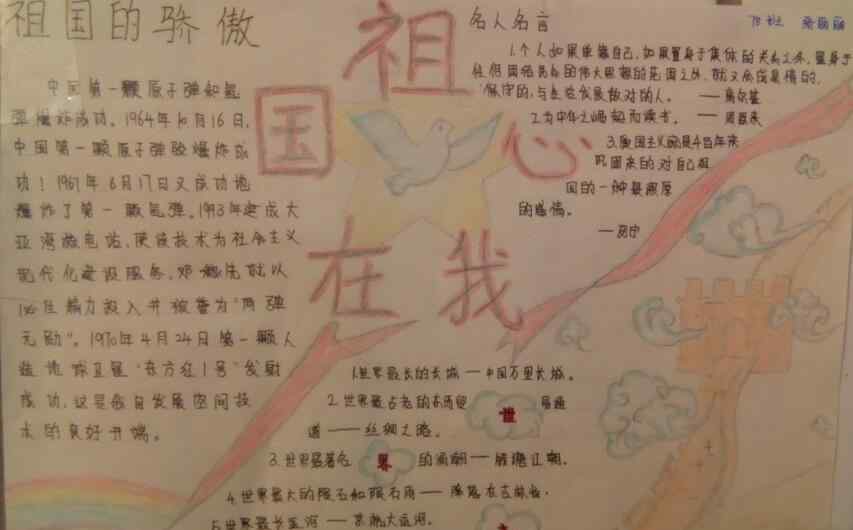 祖国的骄傲
中国第一颗原子弹和氢
弹爆炸成功。1964年10月16日,
中国第一颗原子弹爆炸成
功!1967年6月17日又成功地
爆炸了第一颗氢弹。1993年建成大
亚湾核电站,使核技术为社会主义
现代化建设服务,邓稼先就以
毕生精力投入并被誉为“两弹
元勋”。1970年4月24日第一颗人
造地球卫星“东方红1号”发射
成功,这是我国发展空间技
术的良好开端。
祖
国
心
在
我
名人名言
1.个人如果单靠自己,如果置身于集体的关系之外,置身于
任何团结民众的伟大思想的范围之外,就又会成是惰的,
保守的,与生活发展敌对的人。——高尔基
2.为中华之崛起而读书。——周恩来
3.爱国主义就是千百年来
巩固来的对自己祖
国的一种最深厚
的感情。
—列宁
1.世界最长的长城—中国万里长城。
2.世界最古老的东西贸易通
道——丝绸之路。
3.世界最著名的涌潮——钱塘江潮。
4.世界最大的陨石和陨石雨——降落在吉林省。
5.世界最长运河——京杭大运河。
世
界